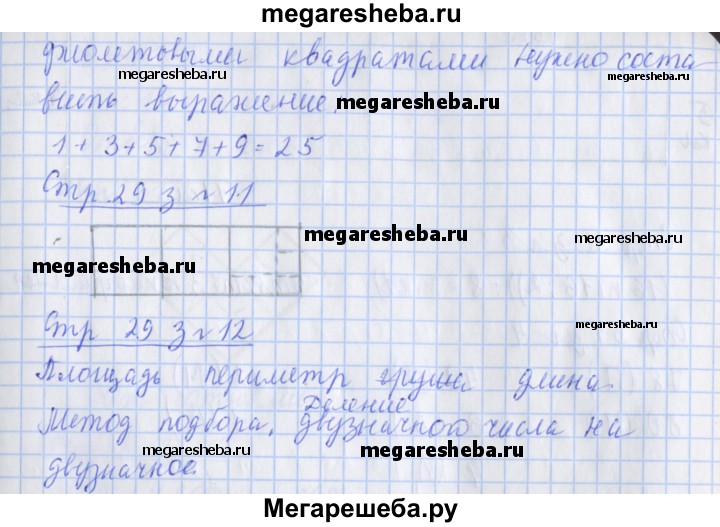 megaresheba.ru
фиолетовыми квадратами нужно соста
megaresheba.ru megaresheba.ru
вить выражение.
megaresheba.ru
1+3+5+7+9=25
megaresheba.ru
Стр 29 з № 11
megaresheba.ru
megaresheba.ru
megaresheba.ru
Стр 29 з № 12
megaresheba.ru
Площадь периметр груша длина.
megaresheba.ru
Деление
Метод подбора, двузначного числа на
megaresheba.ru
megaresheba.ru
двузначное.
Мегарешеба.ру